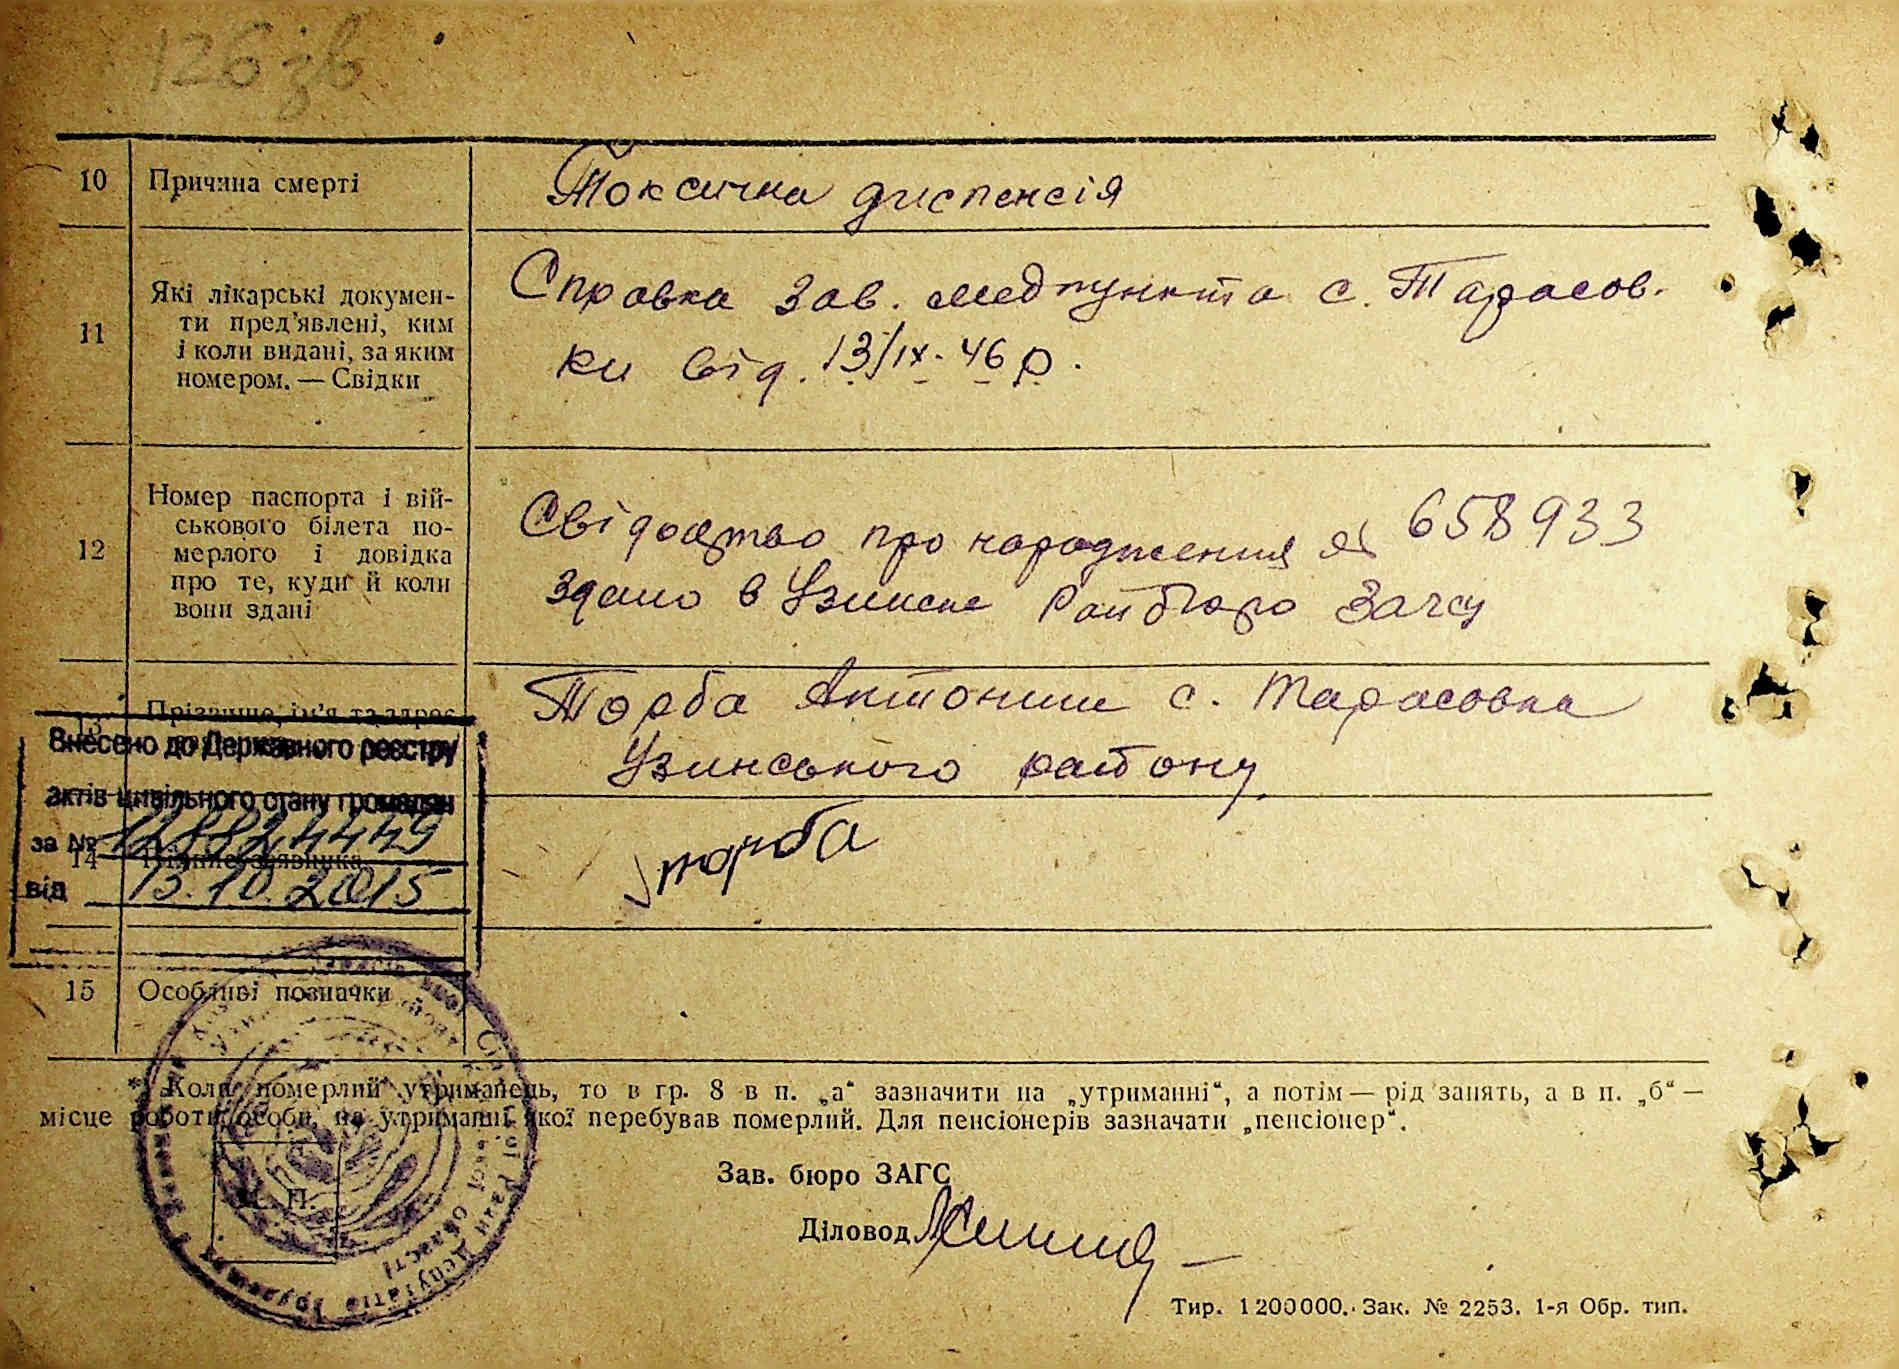 126 зв
10 Причина смерті Токсична диспенсія
11 Які лікарські докумен-
ти пред'явлені, ким
і коли видані, за яким
номером. — Свідки
Справка зав. медпункта с. Тарасов-
ки від. 13/IX-46 р.
12 Номер паспорта і вій-
ськового білета по-
мерлого і довідка
про те, куди й коли
вони здані
Свідоцтво про народження 658933
здано в Узинске Райбюро Загсу
13 Прізвище, ім'я та адрес
Торба Антонина с. Тарасовка
Узинського району
Внесено до Державного реєстру
актів цивільного стану громадян
за № 128824449
від 13.10.2015
14
Торба
15 Особливі позначки
*) Коли померлий утриманець, то в гр. 8 в п. „а“ зазначити на „утриманні“, а потім — рід занять, а в п. „б“ —
місце роботи особи, на утриманні якої перебував померлий. Для пенсіонерів зазначати „пенсіонер“.
М. П.
Зав. бюро ЗАГС
Діловод
Тир. 1200000. Зак. № 2253. 1-я Обр. тип.